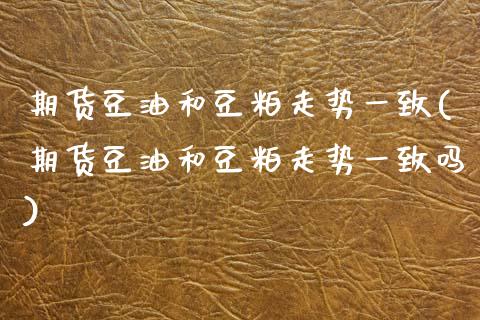 期货豆油和豆粕走势一致(
期货豆油和豆粕走势一致吗
)